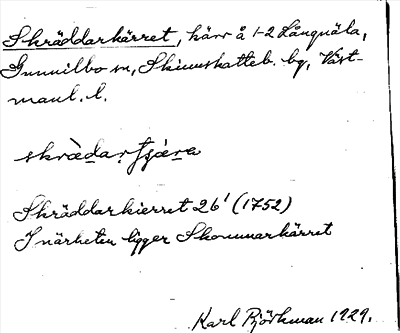 Skräddarkärret, kärr å 1-2 Långnäla,
Gunnilbo sn, Skinnskatteb. bg, Väst-
manl. l.
skrädarҭsjära
Skräddarkierret 26' (1752)
I närheten ligger Skomnarkärret
Karl Björkman 1929.